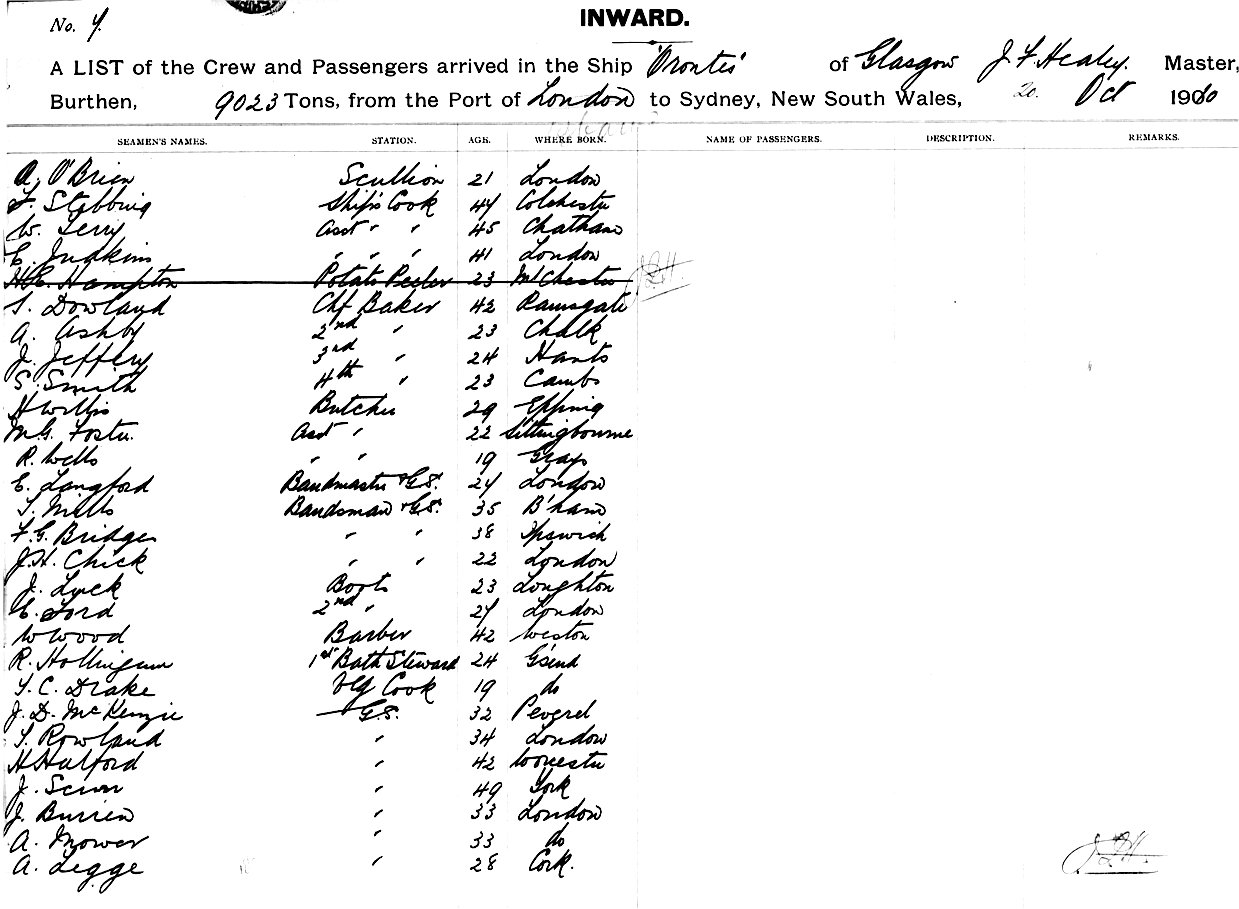 No. 7.
INWARD.
A LIST of the Crew and Passengers arrived in the Ship 'Orontes' of Glasgow J. F. Healey. Master,
Burthen, 9023 Tons, from the Port of London to Sydney, New South Wales, 20. Oct 1900
SEAMEN'S NAMES. STATION. AGE. WHERE BORN. NAME OF PASSENGERS. DESCRIPTION. REMARKS.
A. O'Brien Scullion 21 London
F. Stebbing Ship's Cook 44 Colchester
W. Terry Asst " " 45 Chatham
E. Judkins " " " 41 London
H.E. Hampton Potato Peeler 23 M'Chester
S. Dowland Chf Baker 42 Ramsgate
A. Ashby 2nd " 23 Chalk
J. Jeffery 3rd " 24 Hants
S. Smith 4th " 23 Cambs
H Willis Butcher 29 Epping
M.G. Foster. Asst " 22 Sittingbourne
R. Wells " " 19 Grays
E. Langford Bandmaster & G.S. 27 London
T. Mills Bandsman & G.S. 35 B'ham
F.G. Bridges " " 38 Ipswich
J.H. Chick " " 22 London
J. Luck Boots 23 Loughton
E. Ford 2nd " 27 London
W Wood Barber 42 Weston
R. Hollingum 1st Bath Steward 24 G'send
T. C. Drake Veg Cook 19 do
J. D. McKenzie G.S. 32 Peverel
T. Rowland " 34 London
H Halford " 42 Worcester
J. " 49 York
J. " 33 London
A. Mower " 33 do
A. Legge " 28 Cork.